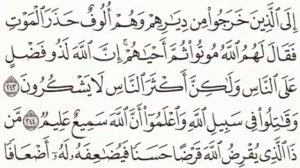 إِلَى ٱلَّذِينَ خَرَجُوا۟ مِن دِيَـٰرِهِمْ وَهُمْ أُلُوفٌ حَذَرَ ٱلْمَوْتِ
فَقَالَ لَهُمُ ٱللَّهُ مُوتُوا۟ ثُمَّ أَحْيَـٰهُمْ ۚ إِنَّ ٱللَّهَ لَذُو فَضْلٍ
عَلَى ٱلنَّاسِ وَلَـٰكِنَّ أَكْثَرَ ٱلنَّاسِ لَا يَشْكُرُونَ ٢٤٣
وَقَـٰتِلُوا۟ فِى سَبِيلِ ٱللَّهِ وَٱعْلَمُوٓا۟ أَنَّ ٱللَّهَ سَمِيعٌ عَلِيمٌ ٢٤٤ مَّن
ذَا ٱلَّذِى يُقْرِضُ ٱللَّهَ قَرْضًا حَسَنًا فَيُضَـٰعِفَهُۥ لَهُۥٓ أَضْعَافًا